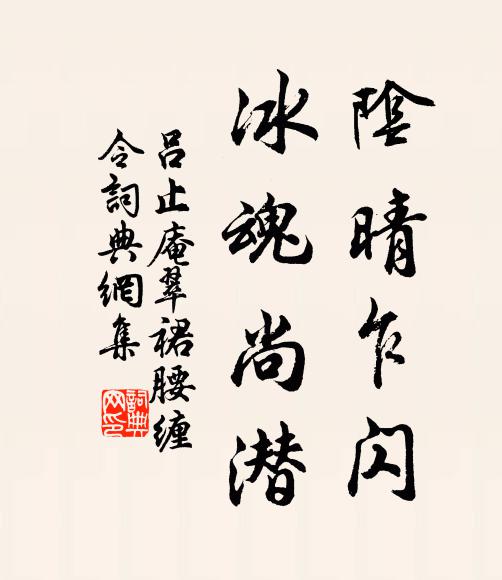 陰晴乍闪
冰魂尚潜
吕止庵翠裙腰缠
令詞典網集
詞典
网印